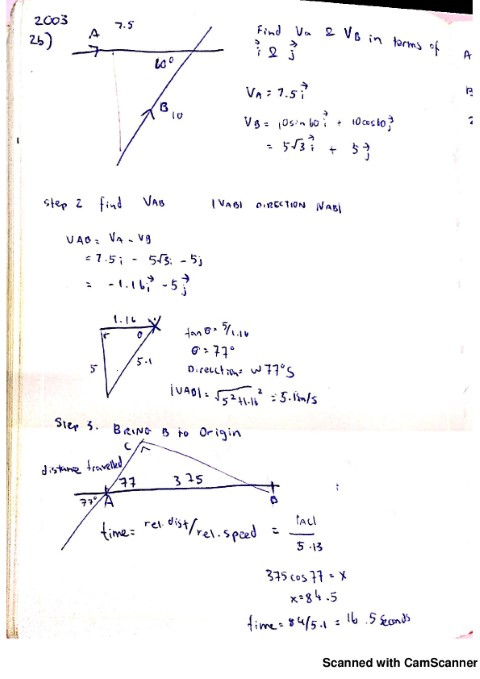 2003
2b)
7.5
A
60°
B
10
Find Va & VB in terms of
i & j
A
VA = 7.5i
VB = 10sin60i + 10cos60j
= 5√3i + 5j
Step 2 find VAB |VAB| DIRECTION |VAB|
VAB = VA - VB
= 7.5i - 5√3i - 5j
= -1.16i - 5j
1.16
θ
5
5.1
tan θ = 5/1.16
θ = 77°
Direction = W77°S
|VAB| = √5²+1.16² = 5.13m/s
Step 3. BRING B to Origin
C
distance travelled
77 375
77° A B
time = rel.dist/rel.speed = |AC|/5.13
375cos77 = x
x = 84.5
time = 84/5.1 = 16.5 seconds
Scanned with CamScanner